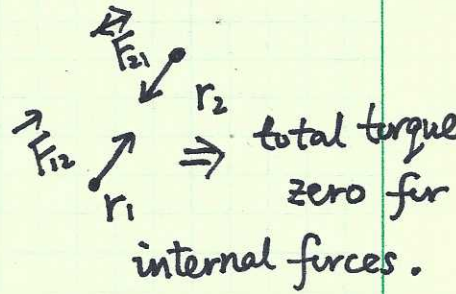 F⃗₂₁
r₂
F⃗₁₂
r₁
⇒ total torque
zero for
internal forces.